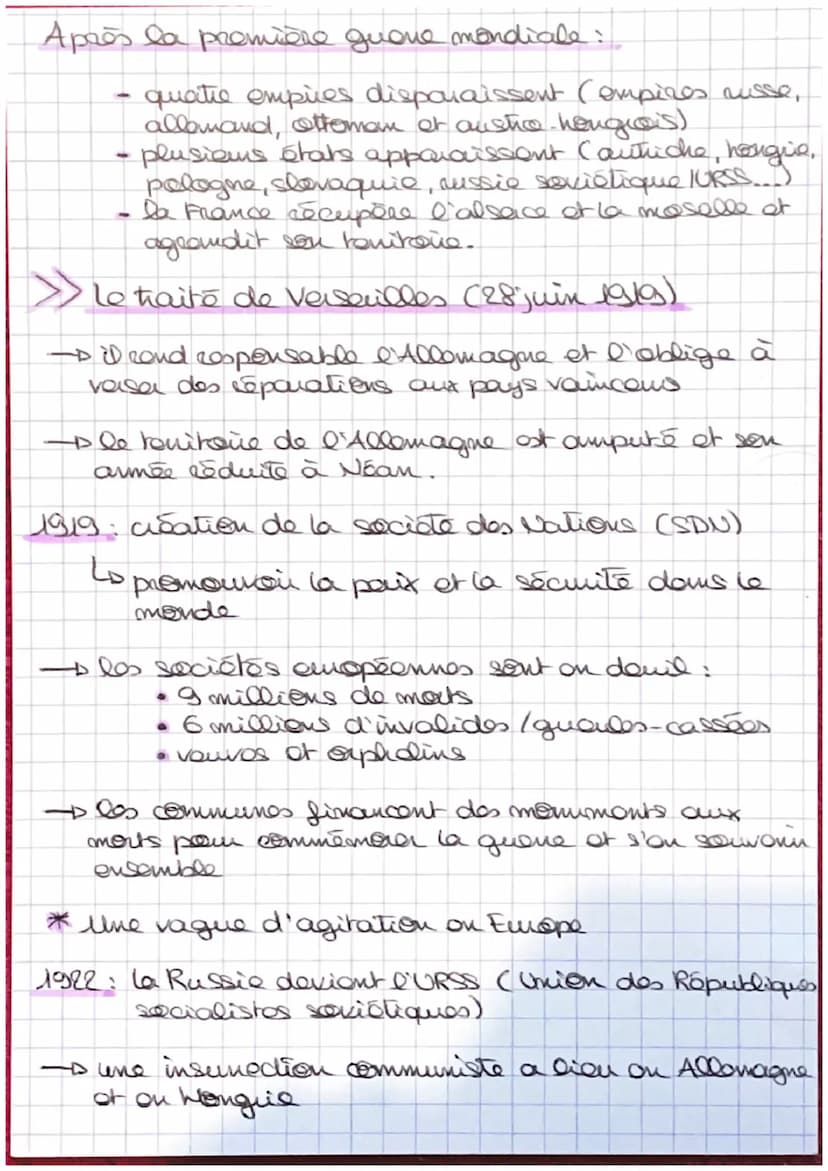 Après la première guerre mondiale :
- quatre empires disparaissent (empires russe,
allemand, ottoman et austro-hongrois)
- plusieurs états apparaissent (autriche, hongrie,
pologne, slovaquie, russie soviétique /URSS...)
- la France récupère l'alsace et la moselle et
agrandit son territoire.
>> Le traité de Versailles (28 juin 1919)
→ il rend responsable l'Allemagne et l'oblige à
verser des réparations aux pays vainceus
→ le territoire de l'Allemagne est amputé et son
armée réduite à Néan.
1919 : création de la société des Nations (SDN)
↳ promouvoir la paix et la sécurité dans le
monde
→ les sociétés européennes sont en deuil :
• 9 millions de morts
• 6 millions d'invalides /gueules-cassées
• veuves et orphelins
→ les communes financent des monuments aux
morts pour commémorer la guerre et s'en souvenir
ensemble
* Une vague d'agitation en Europe
1922 : la Russie devient l'URSS (Union des Républiques
socialistes soviétiques)
→ une insurrection communiste a lieu en Allemagne
et en Hongrie